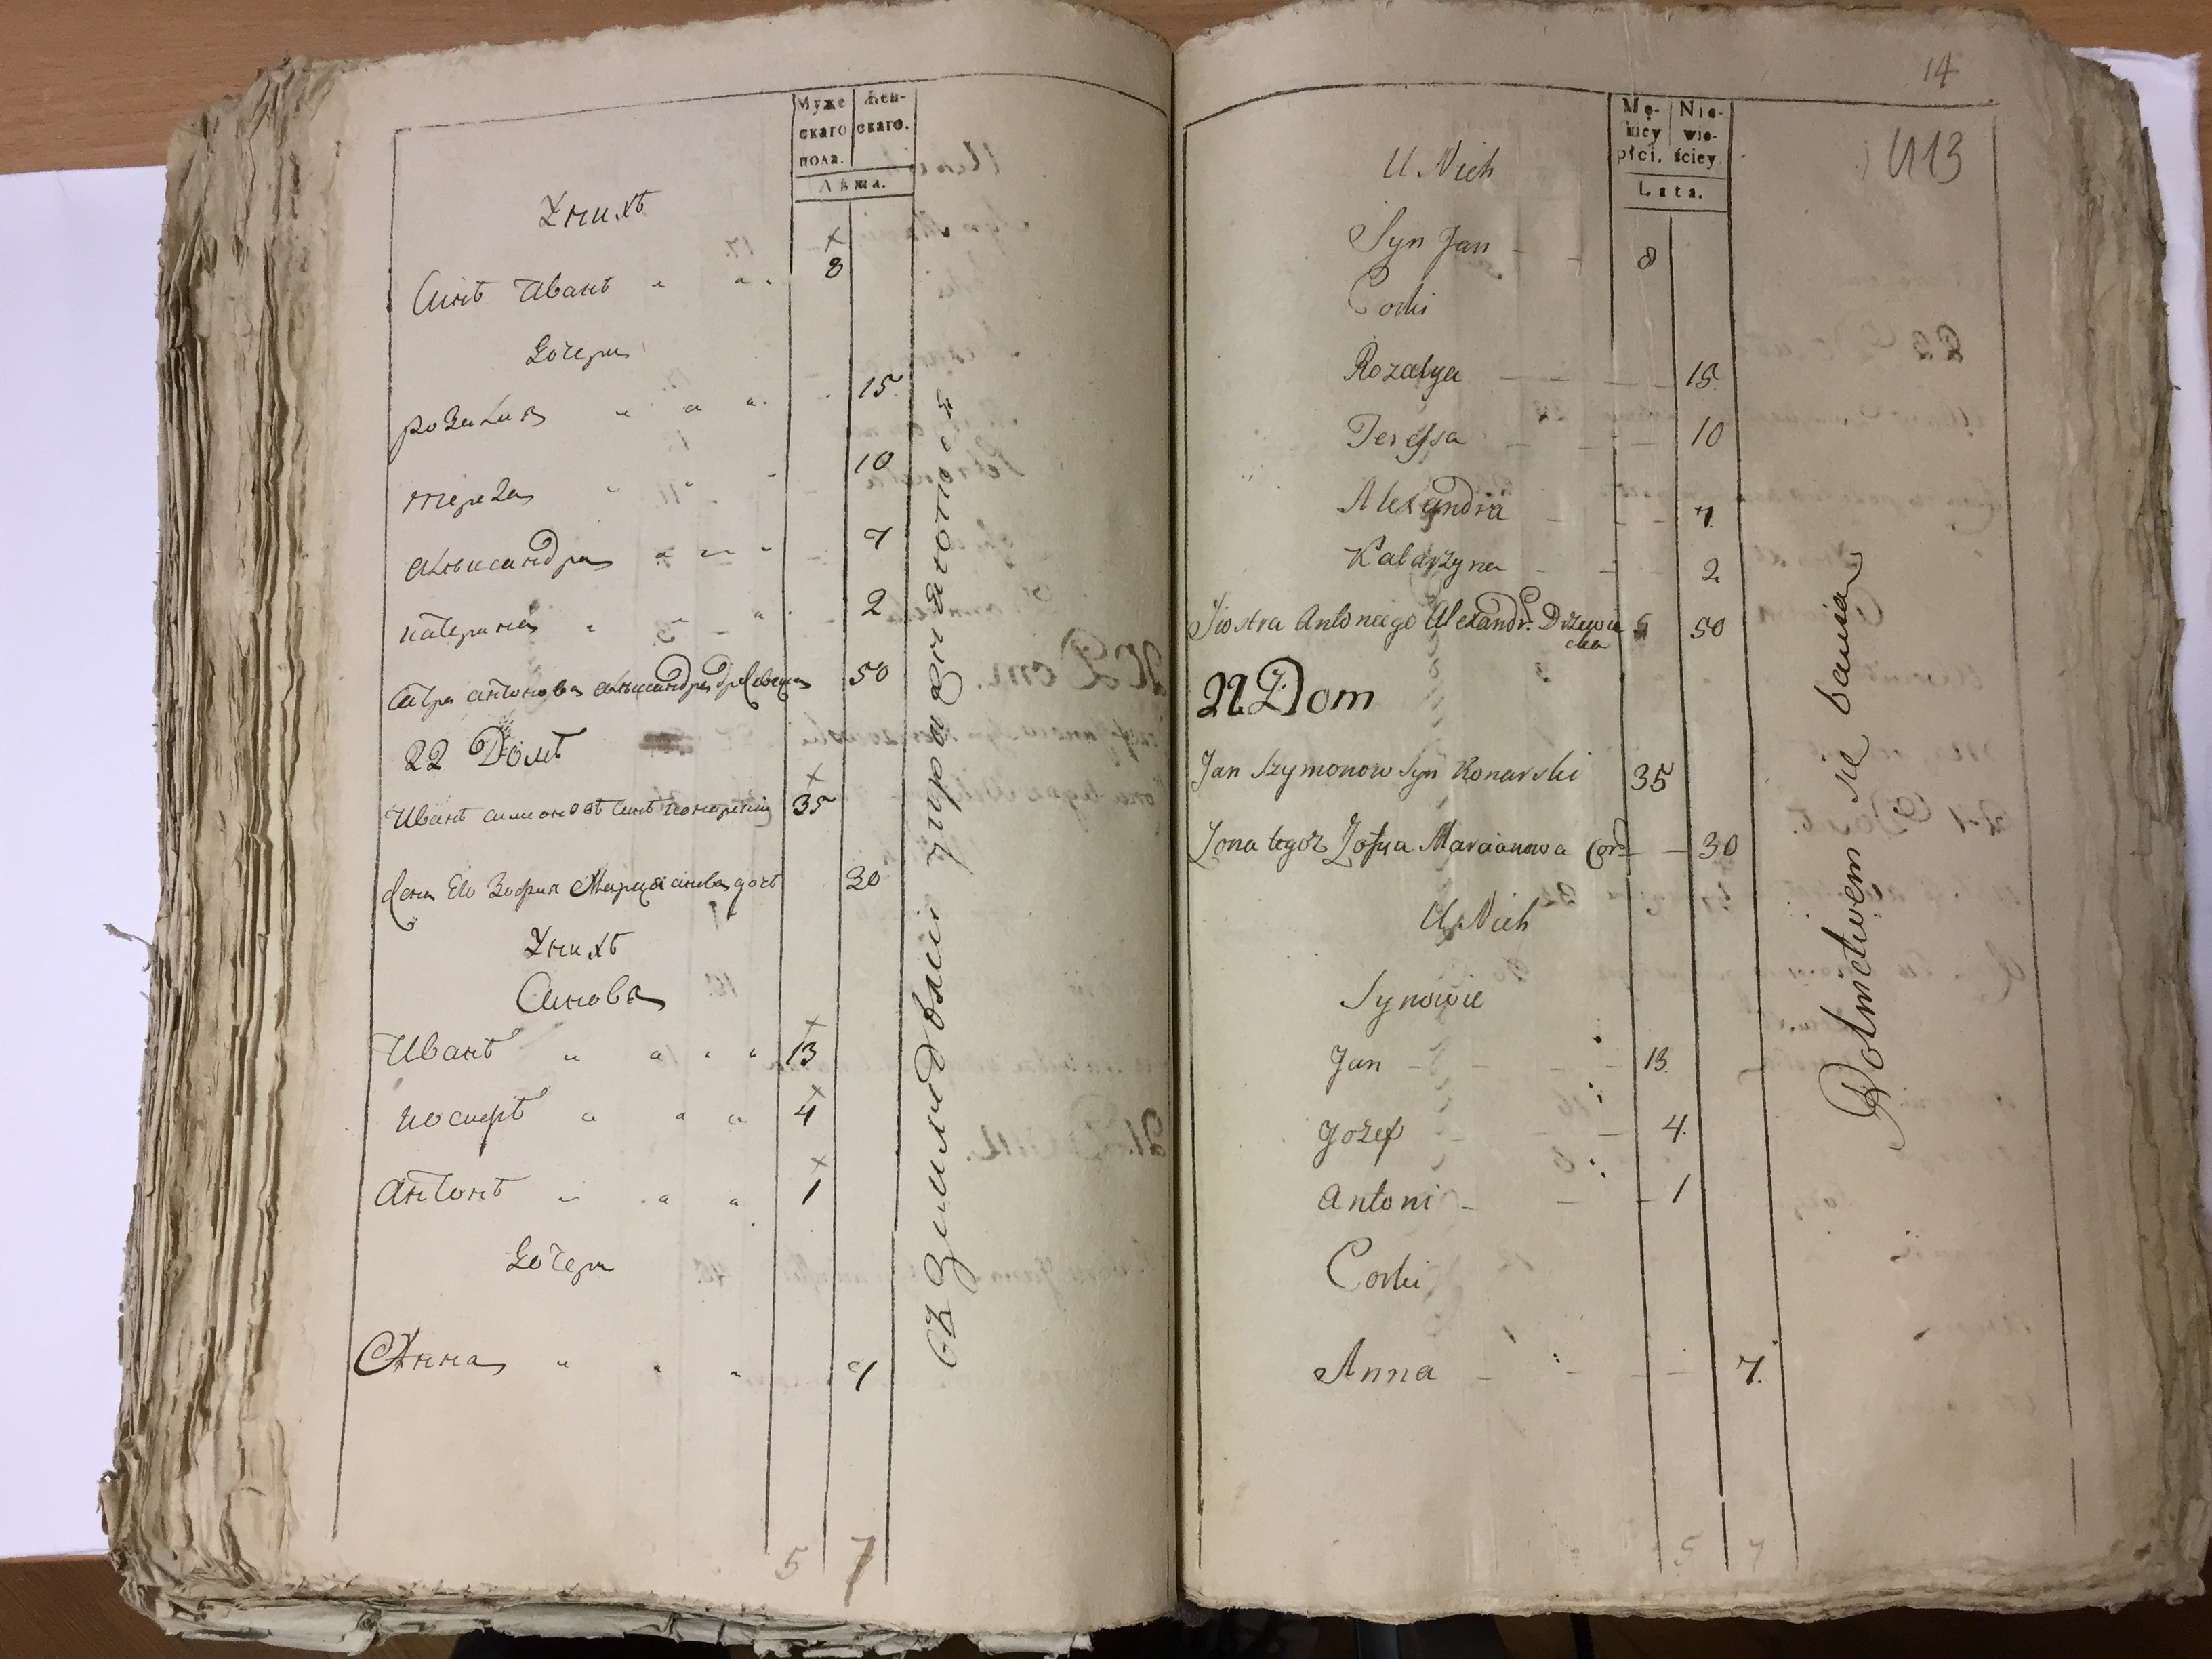 Муже
скаго
пола.
Жен-
скаго.
Лѣта.
У нихъ
Синъ Иванъ 8
Дочери
розалия 15
тереза 10
александра 7
катерина 2
сестра антонова александра 50
22 Домъ
Иванъ симоновъ синъ конарский 35
жена Его Зофия Марцианова дочъ 30
У нихъ
Синовя
Иванъ 13
иосифъ 4
антонъ 1
Дочери
Анна 7
5 7
съ Земледѣлия упражняются
14
Mę-
kiey
płci.
Nie-
wie-
ściey
Lata.
413
U Nich
Syn Jan 8
Corki
Rozalya 15
Teressa 10
Alexandra 7
Katarzyna 2
Siostra Antoniego Alexandr. Drzewie
cka 50
22 Dom
Jan Szymonow Syn Konarski 35
Zona tegoż Zofija Marcianowa Cor 30
U Nich
Synowie
Jan 13
Jozef 4
Antoni 1
Corki
Anna 7
5 7
Rolnictwem się bawią